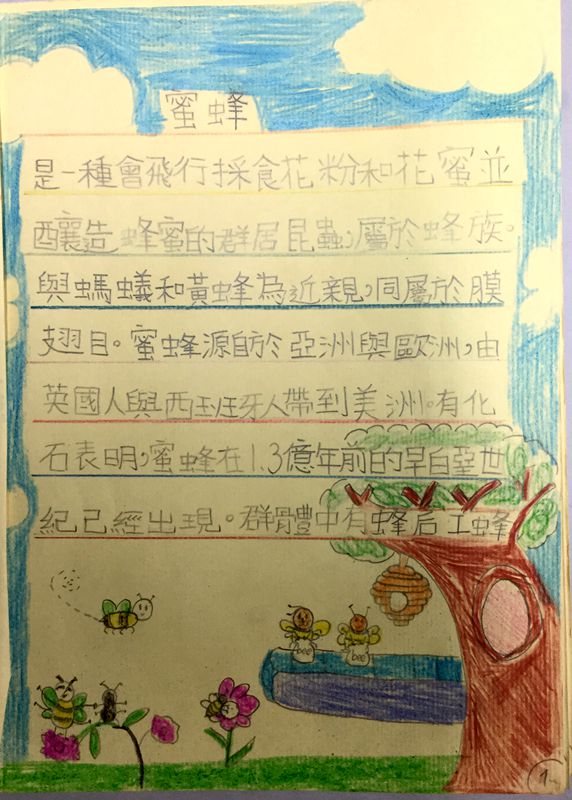 蜜蜂
是一種會飛行採食花粉和花蜜並
釀造蜂蜜的群居昆蟲，屬於蜂族。
與螞蟻和黃蜂為近親，同屬於膜
翅目。蜜蜂源自於亞洲與歐洲，由
英國人與西班牙人帶到美洲。有化
石表明，蜜蜂在1.3億年前的早白堊世
紀已經出現。群體中有蜂后工蜂
bee
bee
1